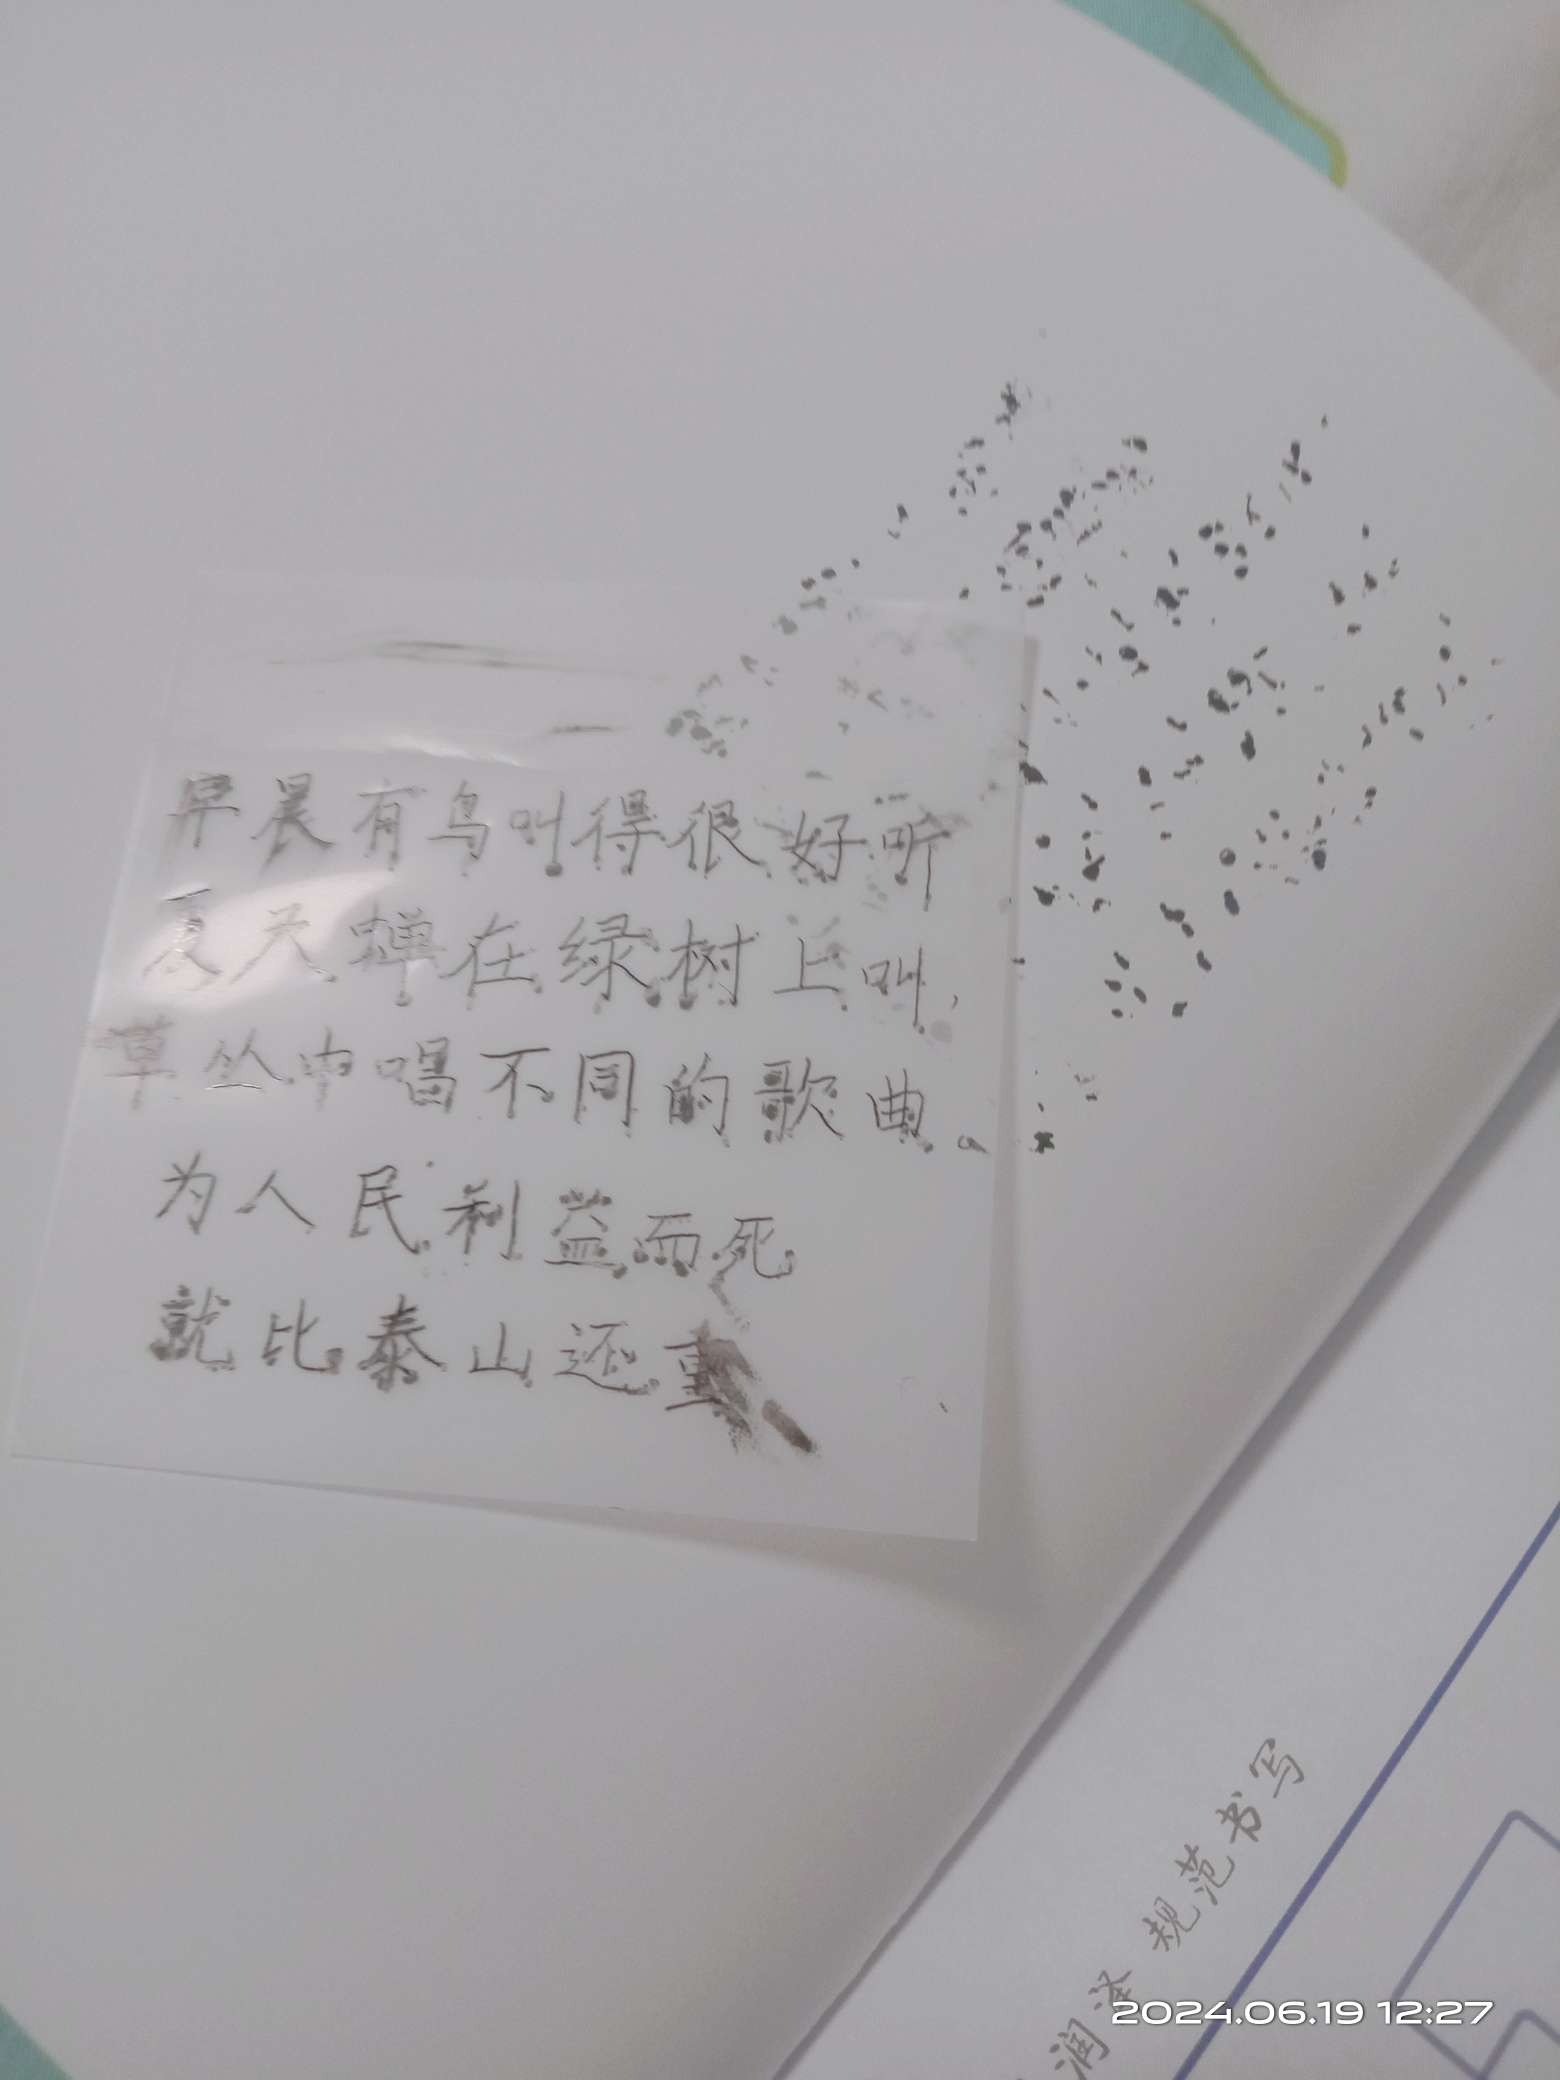 早晨有鸟叫得很好听
夏天蝉在绿树上叫，
草丛中唱不同的歌曲。
为人民利益而死
就比泰山还重
润泽·规范书写
2024.06.19 12:27